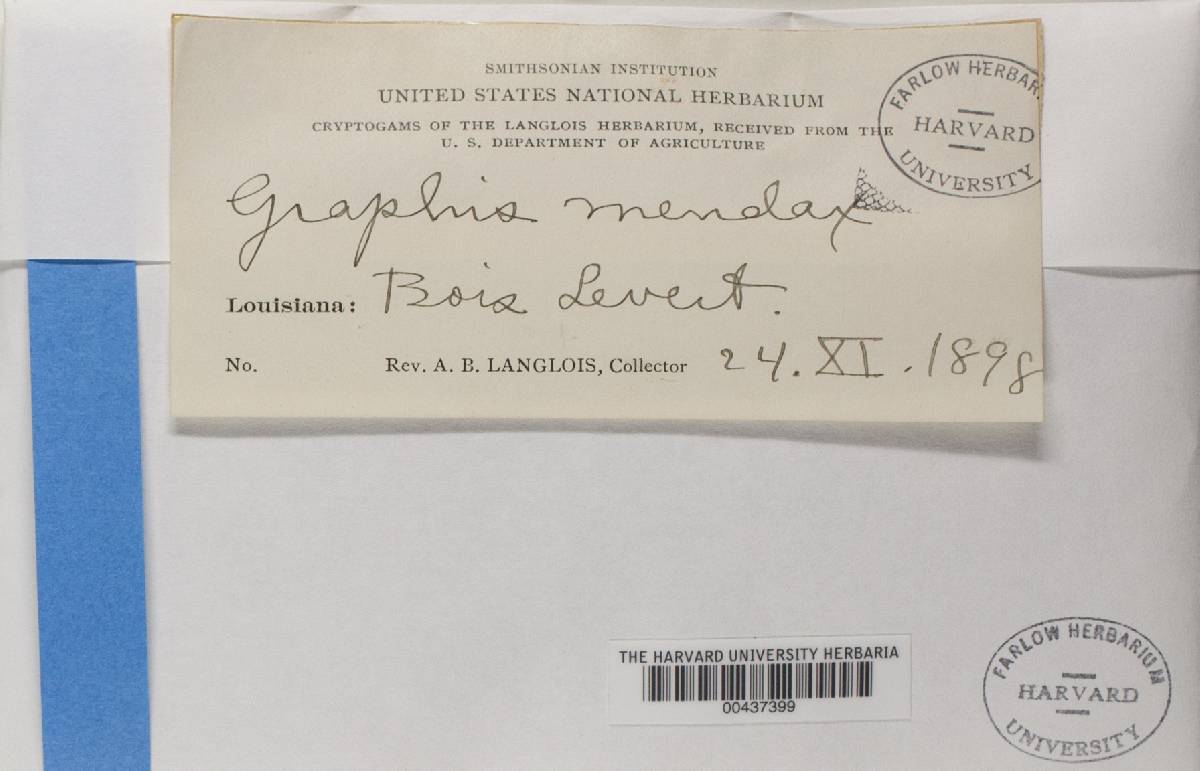 SMITHSONIAN INSTITUTION
UNITED STATES NATIONAL HERBARIUM
CRYPTOGAMS OF THE LANGLOIS HERBARIUM, RECEIVED FROM THE
U. S. DEPARTMENT OF AGRICULTURE
FARLOW HERBAR
HARVARD
UNIVERSITY
Graphis mendax
Louisiana: Bois Levert.
No. Rev. A. B. LANGLOIS, Collector 24. XI. 1898
THE HARVARD UNIVERSITY HERBARIA
00437399
FARLOW HERBARIUM
HARVARD
UNIVERSITY